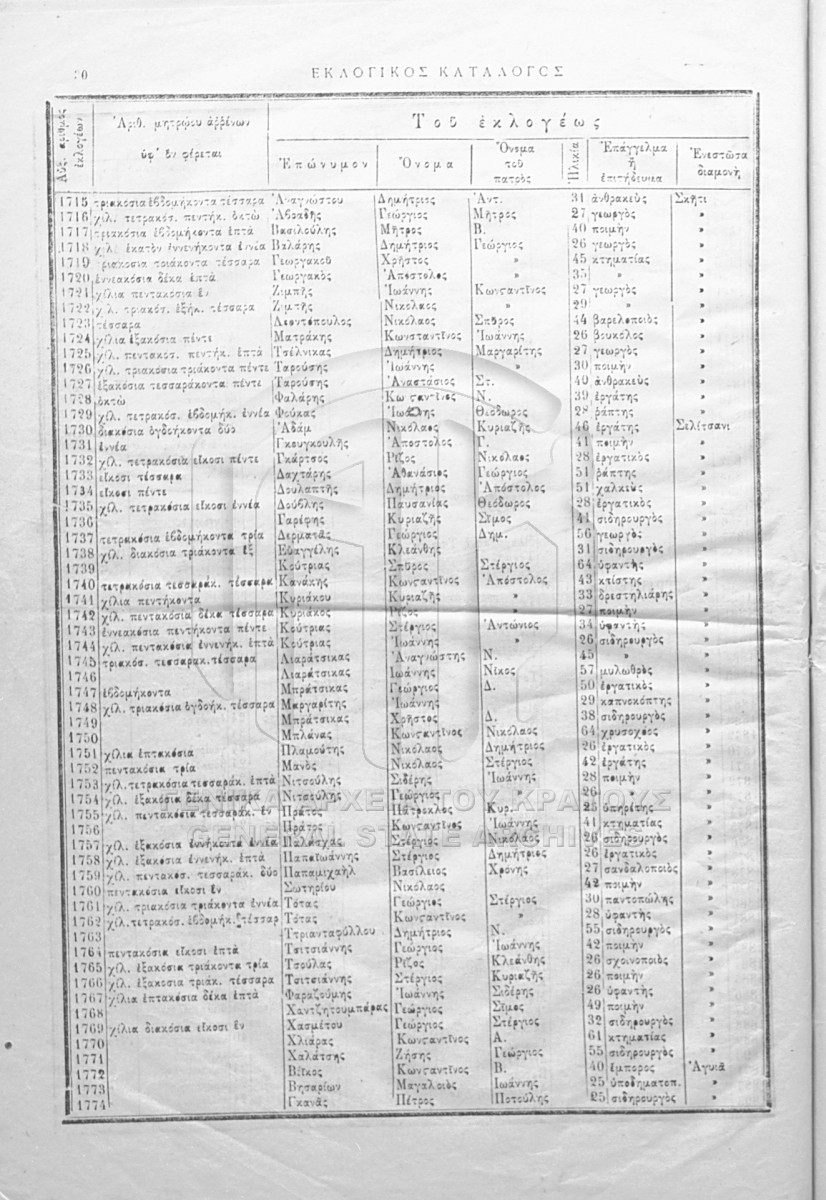 20 ΕΚΛΟΓΙΚΟΣ ΚΑΤΑΛΟΓΟΣ
Αὔξ. ἀριθμὸς ἐκλογέων
Ἀριθ. μητρώου ἀρρένων ὑφ' ὃν φέρεται
Τοῦ ἐκλογέως
Ἐπώνυμον Ὄνομα Ὄνομα τοῦ πατρὸς Ἡλικία Ἐπάγγελμα ἢ ἐπιτήδευμα Ἐνεστῶσα διαμονὴ
1715 τριακόσια ἑβδομήκοντα τέσσαρα Ἀναγνώστου Δημήτριος Ἀντ. 31 ἀνθρακεὺς Σκῆτι
1716 χίλ. τετρακόσ. πεντήκ. ὀκτὼ Ἀβραδῆς Γεώργιος Μῆτρος 27 γεωργὸς »
1717 τριακόσια ἑβδομήκοντα ἑπτὰ Βασιλούλης Μῆτρος Β. 40 ποιμὴν »
1718 χίλ. ἑκατὸν ἐννενήκοντα ἐννέα Βαλάρης Δημήτριος Γεώργιος 26 γεωργὸς »
1719 τριακόσια τριάκοντα τέσσαρα Γεωργακοῦ Χρῆστος » 45 κτηματίας »
1720 ἐννεακόσια δέκα ἑπτὰ Γεωργακὸς Ἀπόστολος » 35 » »
1721 χίλια πεντακόσια ἓν Ζιμπῆς Ἰωάννης Κωνσταντῖνος 27 γεωργὸς »
1722 χίλ. τριακόσ. ἑξήκ. τέσσαρα Ζιμπῆς Νικόλαος » 29 » »
1723 τέσσαρα Λεοντόπουλος Νικόλαος Σπῦρος 44 βαρελοποιὸς »
1724 χίλια ἑξακόσια πέντε Ματράκης Κωνσταντῖνος Ἰωάννης 26 βουκόλος »
1725 χίλ. πεντακόσ. πεντήκ. ἑπτὰ Τσέλνικας Δημήτριος Μαργαρίτης 27 γεωργὸς »
1726 χίλ. τριακόσια τριάκοντα πέντε Ταρούσης Ἰωάννης » 30 ποιμὴν »
1727 ἑξακόσια τεσσαράκοντα πέντε Ταρούσης Ἀναστάσιος Στ. 40 ἀνθρακεὺς »
1728 ὀκτὼ Φαλάρης Κωνσταντῖνος Ν. 39 ἐργάτης »
1729 χίλ. τετρακόσ. ἑβδομήκ. ἐννέα Φούκας Ἰωάννης Θεόδωρος 28 ῥάπτης »
1730 διακόσια ὀγδοήκοντα δύο Ἀδὰμ Νικόλαος Κυριαζῆς 46 ἐργάτης Σελίτσανι
1731 ἐννέα Γκουγκουλῆς Ἀπόστολος Γ. 41 ποιμὴν »
1732 χίλ. τετρακόσια εἴκοσι πέντε Γκάρτσος Ρίζος Νικόλαος 28 ἐργατικὸς »
1733 εἴκοσι τέσσαρα Δαχτάρης Ἀθανάσιος Γεώργιος 51 ῥάπτης »
1734 εἴκοσι πέντε Δουλαπτῆς Δημήτριος Ἀπόστολος 51 χαλκεὺς »
1735 χίλ. τετρακόσια εἴκοσι ἐννέα Δούβλης Παυσανίας Θεόδωρος 28 ἐργατικὸς »
1736 Γαρέφης Κυριαζῆς Σῖμος 41 σιδηρουργὸς »
1737 τετρακόσια ἑβδομήκοντα τρία Δερματᾶς Γεώργιος Δημ. 56 γεωργὸς »
1738 χίλ. διακόσια τριάκοντα ἓξ Εὐαγγέλης Κλεάνθης 31 σιδηρουργὸς »
1739 Κούτριας Σπῦρος Στέργιος 64 ὑφαντὴς »
1740 τετρακόσια τεσσαράκ. τέσσαρα Κανάκης Κωνσταντῖνος Ἀπόστολος 43 κτίστης »
1741 χίλια πεντήκοντα Κυριάκου Κυριαζῆς » 33 »
1742 χίλ. πεντακόσια δέκα τέσσαρα Κυριάκος Ρίζος » 27 ποιμὴν »
1743 ἐννεακόσια πεντήκοντα πέντε Κούτριας Στέργιος Ἀντώνιος 34 ὑφαντὴς »
1744 χίλ. πεντακόσια ἐννενήκ. ἑπτὰ Κούτριας Ἰωάννης » 26 σιδηρουργὸς »
1745 τριακόσ. τεσσαρακ. τέσσαρα Λιαράτσικας Ἀναγνώστης Ν. 45 » »
1746 Λιαράτσικας Ἰωάννης Νίκος 57 μυλωθρὸς »
1747 ἑβδομήκοντα Μπράτσικας Γεώργιος Δ. 50 ἐργατικὸς »
1748 χίλ. τριακόσια ὀγδοήκ. τέσσαρα Μαργαρίτης Ἰωάννης 29 καπνοκόπτης »
1749 Μπράτσικας Χρῆστος Δ. 38 σιδηρουργὸς »
1750 Μπλάνας Κωνσταντῖνος Νικόλαος 64 χρυσοχόος »
1751 χίλια ἑπτακόσια Πλαμούτης Νικόλαος Δημήτριος 26 ἐργατικὸς »
1752 πεντακόσια τρία Μανὸς Νικόλαος Στέργιος 42 ἐργάτης »
1753 χίλ. τετρακόσια τεσσαράκ. ἑπτὰ Νιτσούλης Σιδέρης Ἰωάννης 28 ποιμὴν »
1754 χίλ. ἑξακόσια δέκα τέσσαρα Νιτσούλης Γεώργιος 26 » »
1755 χίλ. πεντακόσια τεσσαράκ. ἓν Πράτος Πάτροκλος Κυρ. 25 ὑπηρέτης »
1756 Πράτος Κωνσταντῖνος Ἰωάννης 41 κτηματίας »
1757 χίλ. ἑξακόσια ἐννήκοντα ἐννέα Παλάσχας Στέργιος Νικόλαος 26 σιδηρουργὸς »
1758 χίλ. ἑξακόσια ἐννενήκ. ἑπτὰ Παπαϊωάννης Στέργιος Δημήτριος 26 ἐργατικὸς »
1759 χίλ. πεντακόσ. τεσσαράκ. δύο Παπαμιχαὴλ Βασίλειος Χρόνης 27 σανδαλοποιὸς »
1760 πεντακόσια εἴκοσι ἓν Σωτηρίου Νικόλαος 42 ποιμὴν »
1761 χίλ. τριακόσια τριάκοντα ἐννέα Τότας Γεώργιος Στέργιος 30 παντοπώλης »
1762 χίλ. τετρακόσ. ἑβδομήκ. τέσσαρ Τότας Κωνσταντῖνος » 28 ὑφαντὴς »
1763 Τριανταφύλλου Δημήτριος Ν. 55 σιδηρουργὸς »
1764 πεντακόσια εἴκοσι ἑπτὰ Τσιτσιάννης Γεώργιος Ἰωάννης 42 ποιμὴν »
1765 χίλ. ἑξακόσια τριάκοντα τρία Τσούλας Ρίζος Κλεάνθης 26 σχοινοποιὸς »
1766 χίλ. ἑξακόσια τριάκ. τέσσαρα Τσιτσιάννης Στέργιος Κυριαζῆς 26 ποιμὴν »
1767 χίλια ἑπτακόσια δέκα ἑπτὰ Φαραζούμης Ἰωάννης Σιδέρης 26 ὑφαντὴς »
1768 Χαντζητουμπάρας Γεώργιος Σῖμος 49 ποιμὴν »
1769 χίλια διακόσια εἴκοσι ἓν Χασμέτου Γεώργιος Στέργιος 32 σιδηρουργὸς »
1770 Χλιάρας Κωνσταντῖνος Α. 61 κτηματίας »
1771 Χαλάτσης Ζήσης Γεώργιος 55 σιδηρουργὸς »
1772 Βῖτκος Κωνσταντῖνος Β. 40 ἔμπορος Ἁγυιὰ
1773 Βησαρίων Μαγαλοιὸς Ἰωάννης 25 ὑποδηματοπ. »
1774 Γκανᾶς Πέτρος Ποτούλης 25 σιδηρουργὸς »
ΓΕΝΙΚΑ ΑΡΧΕΙΑ ΤΟΥ ΚΡΑΤΟΥΣ
GENERAL STATE ARCHIVES